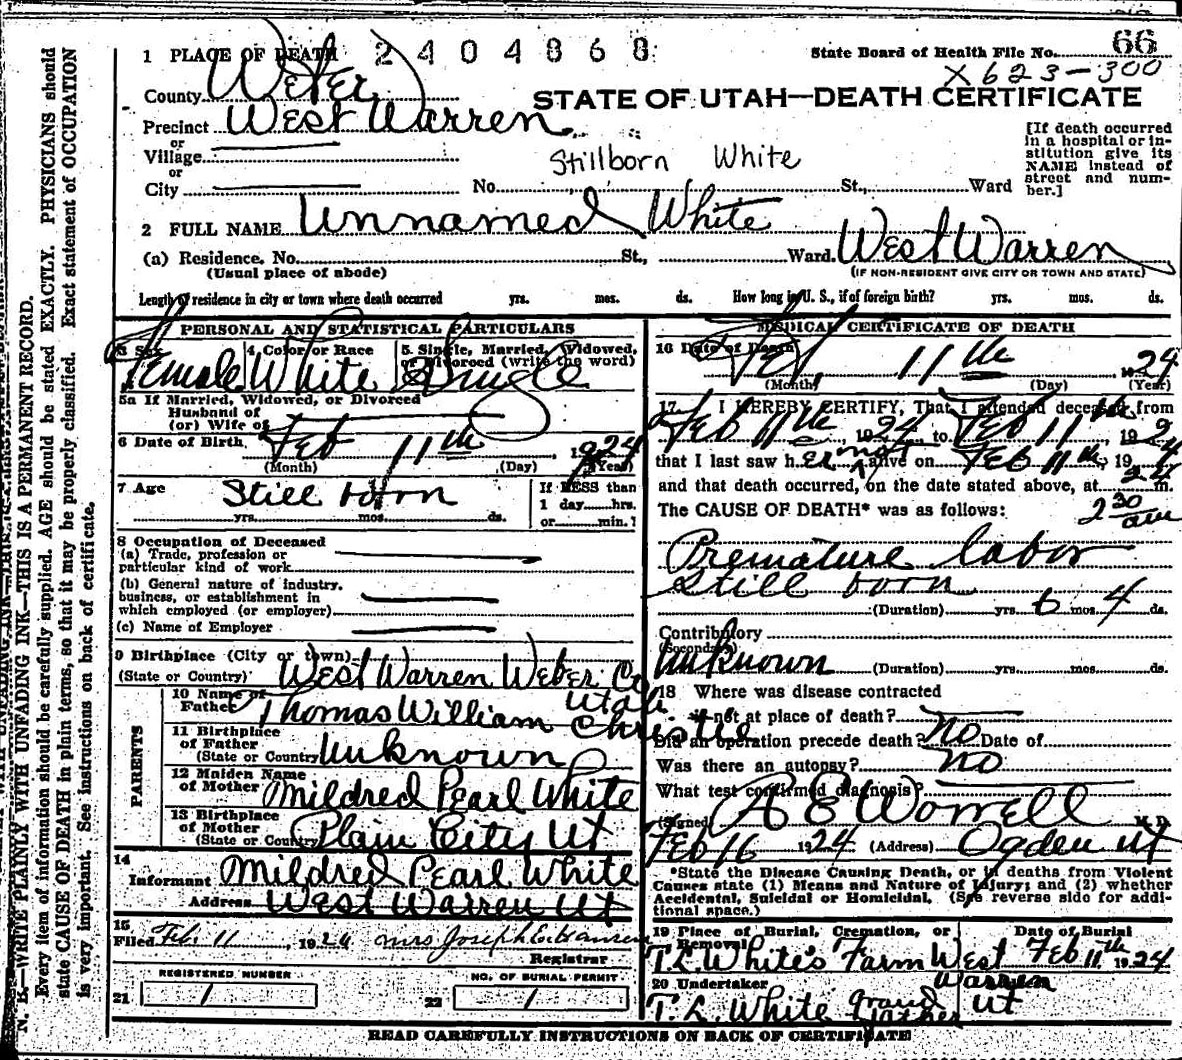 1 PLACE OF DEATH 2404868
State Board of Health File No. 66
X623-300
County Weber
STATE OF UTAH—DEATH CERTIFICATE
Precinct West Warren
or
Village
or
City
Stillborn White
No. St., Ward
[If death occurred
in a hospital or in-
stitution give its
NAME instead of
street and num-
ber.]
2 FULL NAME Unnamed White
(a) Residence. No. St., Ward. West Warren
(Usual place of abode)
(IF NON-RESIDENT GIVE CITY OR TOWN AND STATE)
Length of residence in city or town where death occurred yrs. mos. ds. How long in U. S., if of foreign birth? yrs. mos. ds.
PERSONAL AND STATISTICAL PARTICULARS
3 Sex Female
4 Color or Race White
5. Single, Married, Widowed,
or Divorced (write the word)
Single
5a If Married, Widowed, or Divorced
Husband of
(or) Wife of
6 Date of Birth Feb 11th, 1924
(Month) (Day) (Year)
7 Age Still born
yrs. mos. ds.
If LESS than
1 day hrs.
or min.?
8 Occupation of Deceased
(a) Trade, profession or
particular kind of work
(b) General nature of industry,
business, or establishment in
which employed (or employer)
(c) Name of Employer
9 Birthplace (City or town)
(State or Country) West Warren Weber Co
Utah
PARENTS
10 Name of
Father Thomas William Christie
11 Birthplace
of Father
(State or Country) Unknown
12 Maiden Name
of Mother Mildred Pearl White
13 Birthplace
of Mother
(State or Country) Plain City Ut
14
Informant Mildred Pearl White
Address West Warren Ut
15
Filed Feb 11, 1924 Mrs Joseph E.
Registrar
REGISTERED NUMBER
21 1
NO. OF BURIAL PERMIT
22 1
MEDICAL CERTIFICATE OF DEATH
16 Date of Death Feb, 11th 1924
(Month) (Day) (Year)
17 I HEREBY CERTIFY, That I attended deceased from
Feb 11th, 1924 to Feb 11th 1924
that I last saw her not alive on Feb 11th, 1924
and that death occurred, on the date stated above, at m.
230 am
The CAUSE OF DEATH* was as follows:
Premature labor
Still born
(Duration) yrs. 6 mos. 4 ds.
Contributory
(Secondary)
Unknown (Duration) yrs. mos. ds.
18 Where was disease contracted
if not at place of death?
Did an operation precede death? No Date of
Was there an autopsy? no
What test confirmed diagnosis?
(Signed) A E Worrell M.D.
Feb 16 1924 (Address) Ogden Ut
*State the Disease Causing Death, or in deaths from Violent
Causes state (1) Means and Nature of Injury; and (2) whether
Accidental, Suicidal or Homicidal. (See reverse side for addi-
tional space.)
19 Place of Burial, Cremation, or
Removal
Date of Burial
T.L. White's Farm West Warren Ut Feb 11th 1924
20 Undertaker
T. L. White grand father
READ CAREFULLY INSTRUCTIONS ON BACK OF CERTIFICATE
N. B.—WRITE PLAINLY WITH UNFADING INK—THIS IS A PERMANENT RECORD.
Every item of information should be carefully supplied. AGE should be stated EXACTLY. PHYSICIANS should
state CAUSE OF DEATH in plain terms, so that it may be properly classified. Exact statement of OCCUPATION
is very important. See instructions on back of certificate.